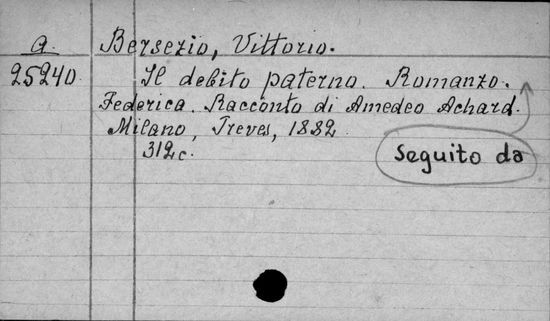 a. Bersezio, Vittorio.
25240. Il debito paterno. Romanzo.
Federica. Racconto di Amedeo Achard.
Milano, Treves, 1882
312 c.
seguito da